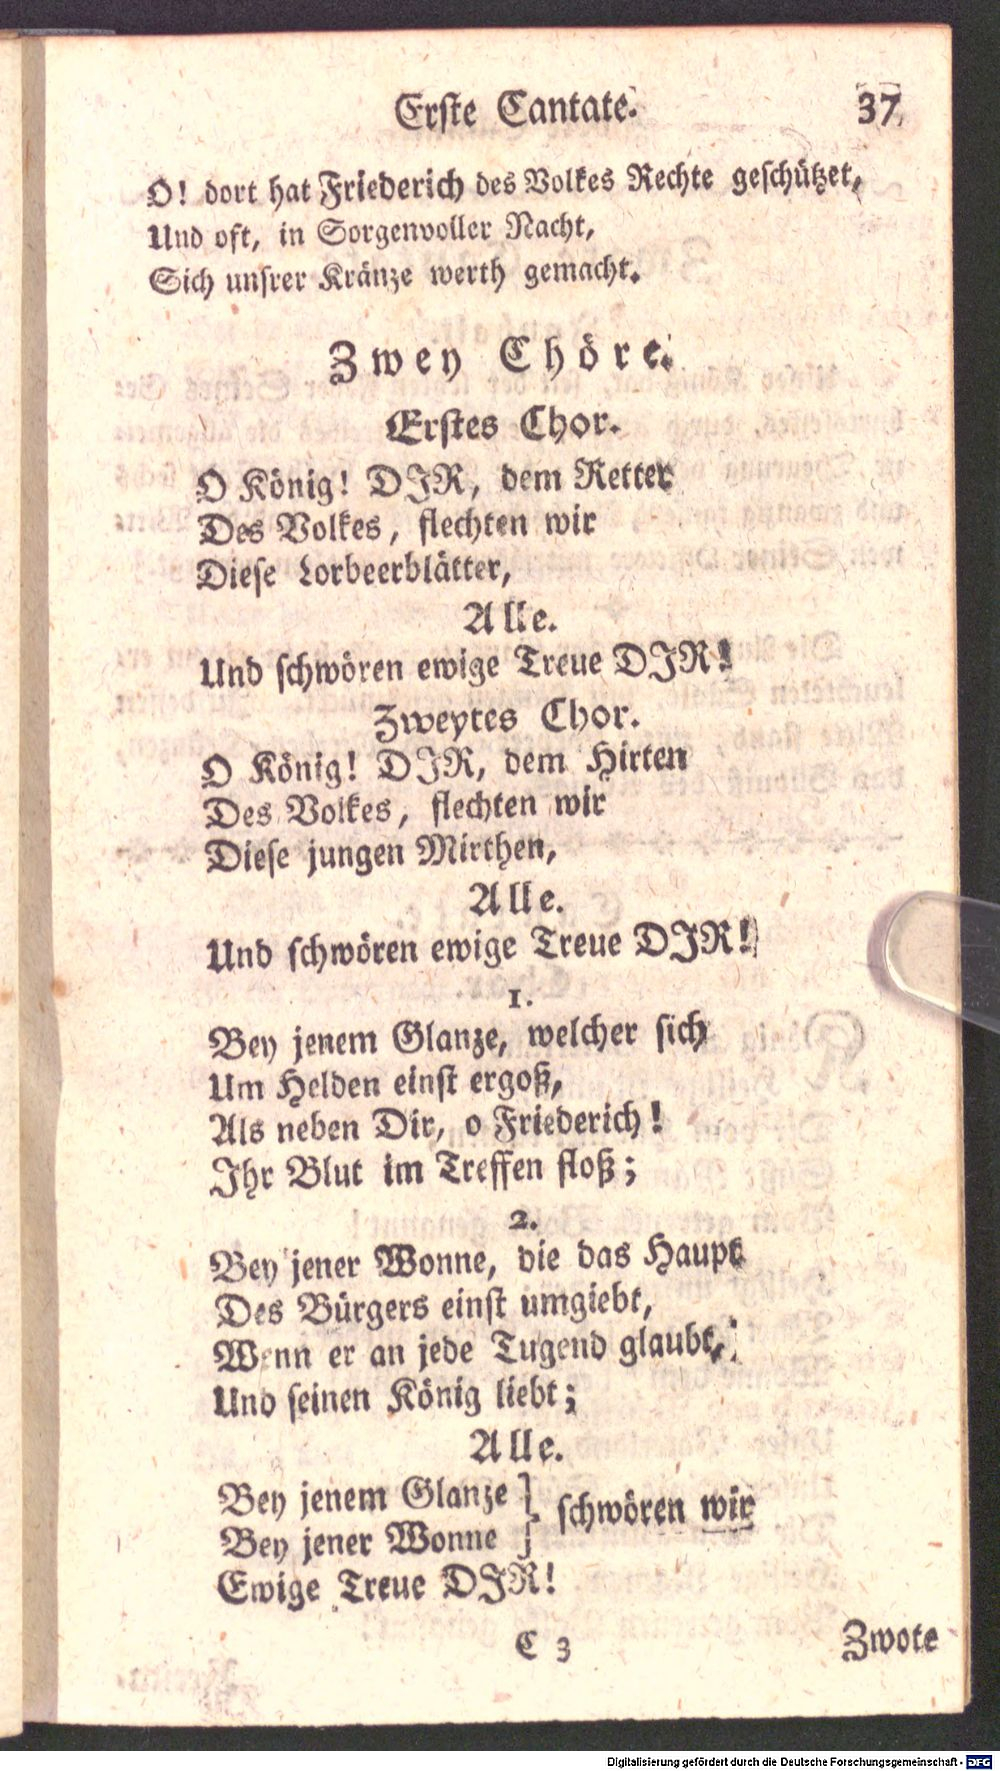 Erste Cantate. 37
O! dort hat Friederich des Volkes Rechte geschützet,
Und oft, in Sorgenvoller Nacht,
Sich unsrer Kränze werth gemacht.
Zwey Chöre.
Erstes Chor.
O König! DIR, dem Retter
Des Volkes, flechten wir
Diese Lorbeerblätter,
Alle.
Und schwören ewige Treue DIR!
Zweytes Chor.
O König! DIR, dem Hirten
Des Volkes, flechten wir
Diese jungen Mirthen,
Alle.
Und schwören ewige Treue DIR!
1.
Bey jenem Glanze, welcher sich
Um Helden einst ergoß,
Als neben Dir, o Friederich!
Ihr Blut im Treffen floß;
2.
Bey jener Wonne, die das Haupt
Des Bürgers einst umgiebt,
Wenn er an jede Tugend glaubt,
Und seinen König liebt;
Alle.
Bey jenem Glanze } schwören wir
Bey jener Wonne
Ewige Treue DIR!
C 3 Zwote
Digitalisierung gefördert durch die Deutsche Forschungsgemeinschaft - DFG